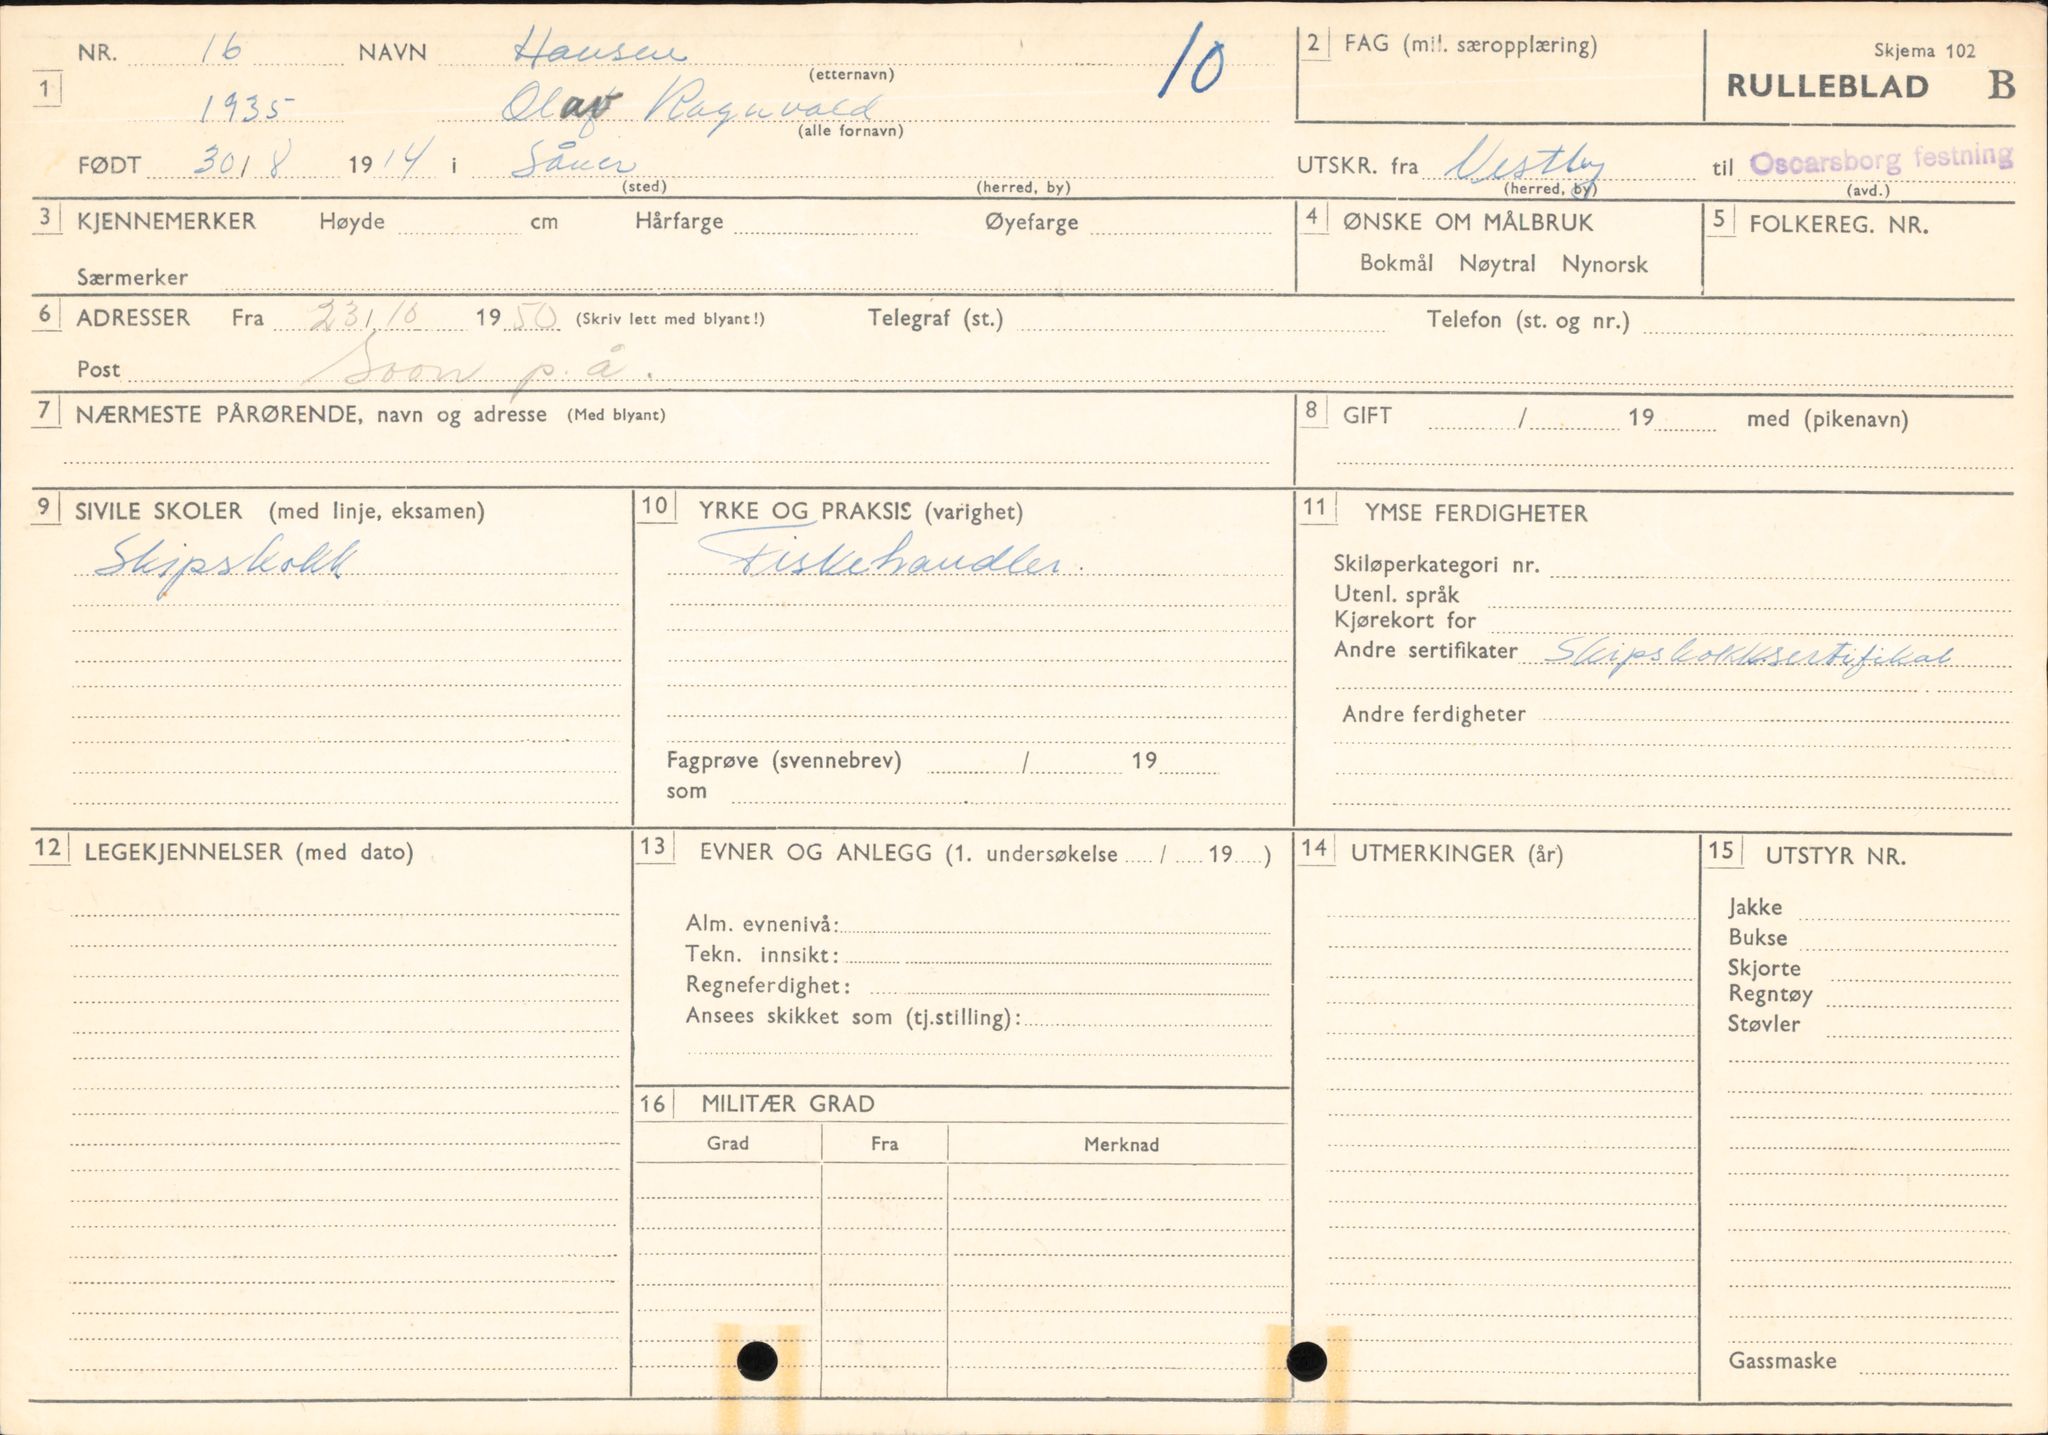 1 NR. 16 NAVN Hansen 10
(etternavn)
1935 Olav Ragnvald
(alle fornavn)
FØDT 30/8 1914 i Såner
(sted) (herred, by)
2 FAG (mil. særopplæring)
Skjema 102
RULLEBLAD B
UTSKR. fra Vestby til Oscarsborg festning
(herred, by) (avd.)
3 KJENNEMERKER Høyde cm Hårfarge Øyefarge
Særmerker
4 ØNSKE OM MÅLBRUK
Bokmål Nøytral Nynorsk
5 FOLKEREG. NR.
6 ADRESSER Fra 23/10 1950 (Skriv lett med blyant!) Telegraf (st.) Telefon (st. og nr.)
Post Soon p. å.
7 NÆRMESTE PÅRØRENDE, navn og adresse (Med blyant)
8 GIFT / 19 med (pikenavn)
9 SIVILE SKOLER (med linje, eksamen)
Skipskokk
10 YRKE OG PRAKSIS (varighet)
Fiskehandler.
Fagprøve (svennebrev) / 19
som
11 YMSE FERDIGHETER
Skiløperkategori nr.
Utenl. språk
Kjørekort for
Andre sertifikater Skipskokksertifikat
Andre ferdigheter
12 LEGEKJENNELSER (med dato)
13 EVNER OG ANLEGG (1. undersøkelse / 19 )
Alm. evnenivå:
Tekn. innsikt:
Regneferdighet:
Ansees skikket som (tj.stilling):
14 UTMERKINGER (år)
15 UTSTYR NR.
Jakke
Bukse
Skjorte
Regntøy
Støvler
Gassmaske
16 MILITÆR GRAD
Grad Fra Merknad